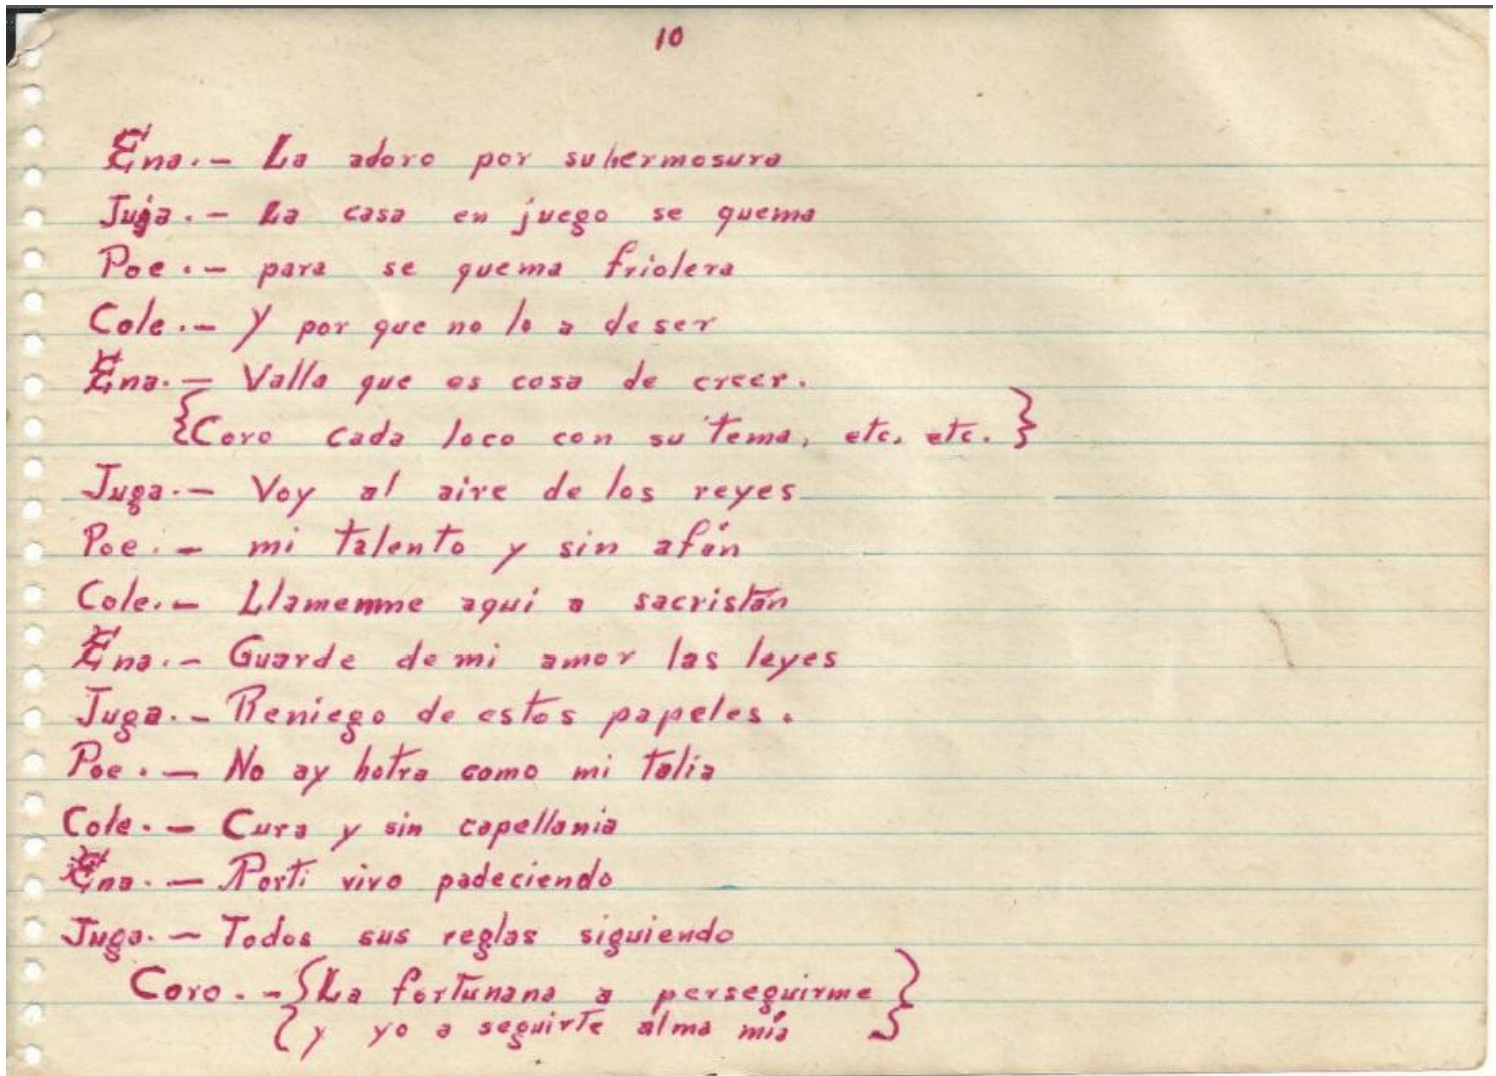 10
Ena.- La adoro por suhermosura
Juja.- La casa en juego se quema
Poe.- para se quema friolera
Cole.- Y por que no lo a de ser
Ena.- Valla que es cosa de creer.
{Coro cada loco con su tema, etc. etc.}
Juga.- Voy al aire de los reyes
Poe.- mi talento y sin afán
Cole.- Llamemme aqui a sacristán
Ena.- Guarde de mi amor las leyes
Juga.- Reniego de estos papeles.
Poe.- No ay hotra como mi talia
Cole.- Cura y sin capellania
Ena.- Porti vivo padeciendo
Juga.- Todos sus reglas siguiendo
Coro.- {La fortunana a perseguirme}
{y yo a seguirte alma mía}